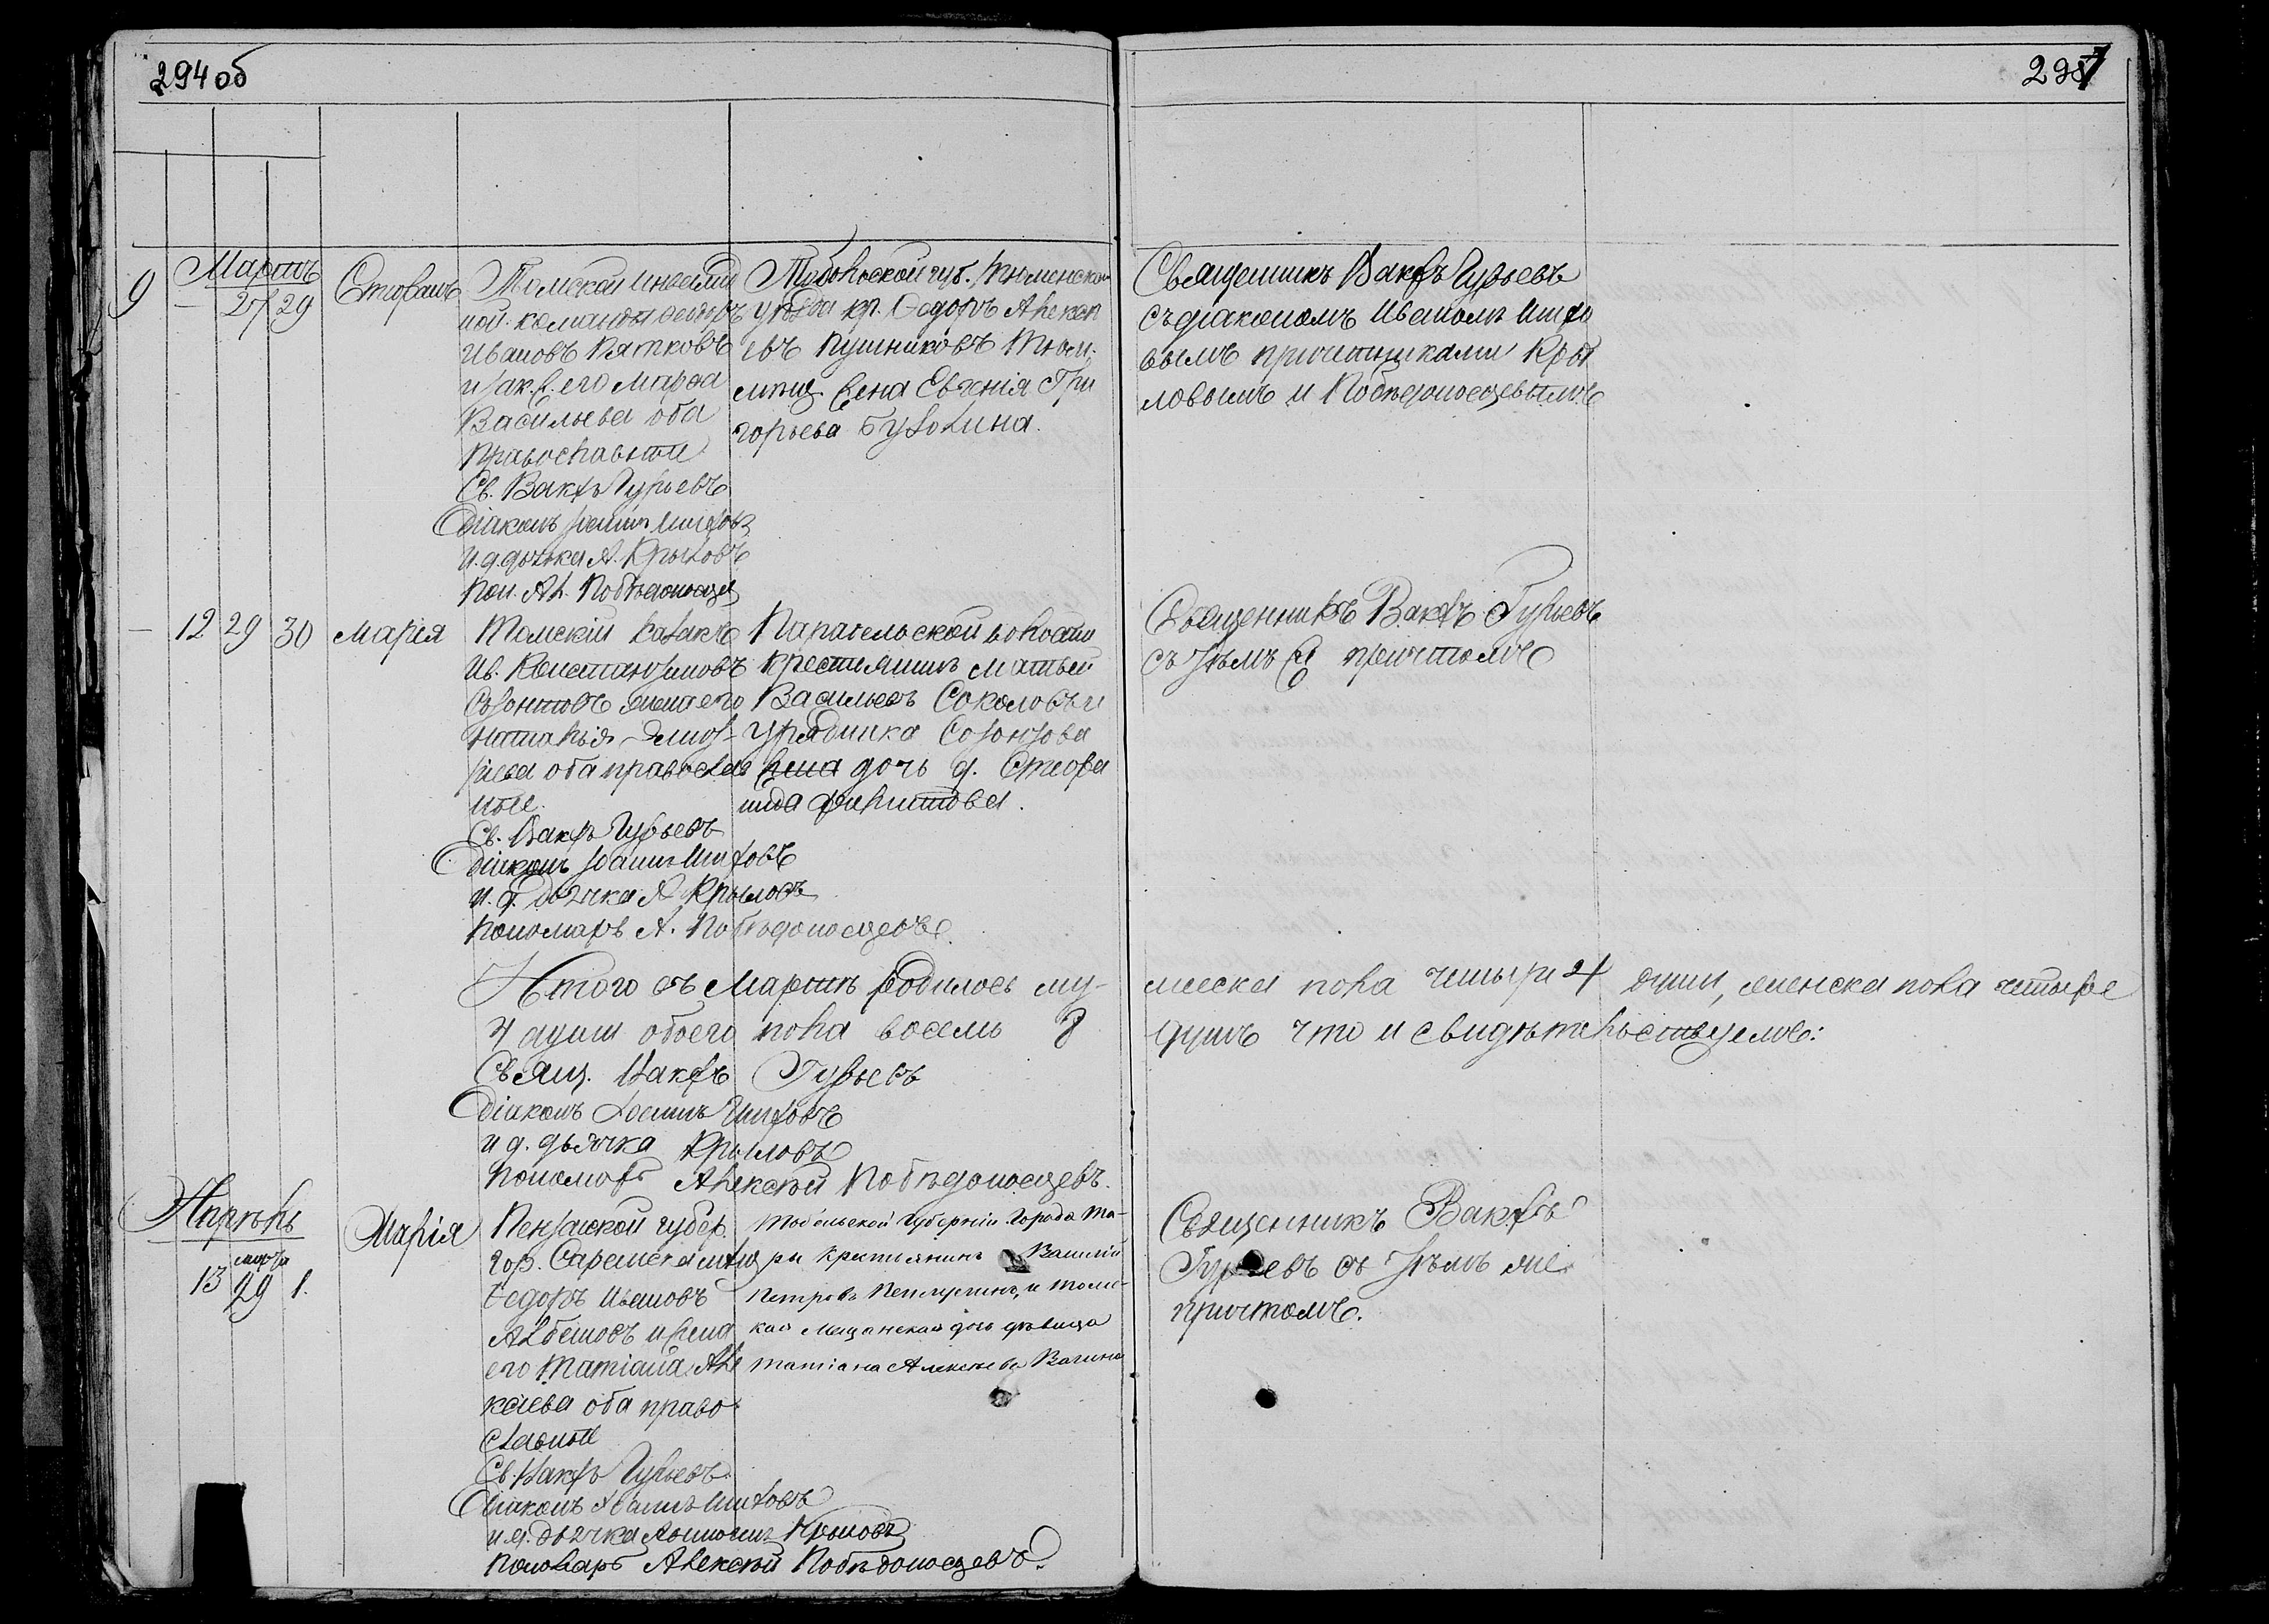 294 об
295
Мартъ
9 — 27 29
Стефанъ
Томской инвалид
ной команды
Ивановъ Пятковъ
и зак. ж. его Марфа
Васильева оба
православные
Св. Вакхъ Гурьевъ
Діаконъ Іоаннъ
и. д. дьячка А. Крыловъ
Пон. Ал. Побѣдоносце
Тобольской губ. Тюменской
уѣзда кр. Ѳедоръ Алекс
евъ Пушниковъ Том.
мѣщ. жена Евгенія Гри
горьева Бузолина.
Священникъ Вакхъ Гурьевъ
съ діакономъ Иваномъ
вымъ причетниками Кры
ловымъ и Побѣдоносцевымъ
— 12 29 30
Марія
Томскій казакъ
Ив. Константиновъ
Созонтовъ жена его
Наталья
ева оба православ
ные.
Св. Вакхъ Гурьевъ
Діаконъ Іоаннъ
и. д. дьячка А. Крыловъ
Пономарь А. Побѣдоносцевъ
Парабельской волости
крестьянинъ Матвей
Васильевъ Соколовъ и
урядника Созонова
жена дочь д. Стефа
нида Филиппова.
Священникъ Вакхъ Гурьевъ
съ тѣмъ же причтомъ
Итого въ Мартѣ родилось му-
жеска пола четыри 4 души, женска пола четыре
4 души обоего пола восемь 8
душъ что и свидѣтельствуемъ:
Свящ. Вакхъ Гурьевъ
Діаконъ Іоаннъ
и д. дьячка Крыловъ
Пономарь Алексѣй Побѣдоносцевъ.
Апрѣль
марта
13 29 1.
Марія
Пензенской губер.
гор. Саранска мѣщ
Ѳедоръ Ивановъ
и жена
его Татіана Але
ксіева оба право
славные
Св. Вакхъ Гурьевъ
Діаконъ Іоаннъ
и. д. дьячка Крыловъ
Пономарь Алексѣй Побѣдоносцевъ.
Тобольской Губерніи Города Та-
ры Крестьянинъ Василій
Петровъ и Томс-
кая Мещанская дочь дѣвица
Татіана Алексѣева Вагина
Священникъ Вакхъ
Гурьевъ съ тѣмъ же
причтомъ.